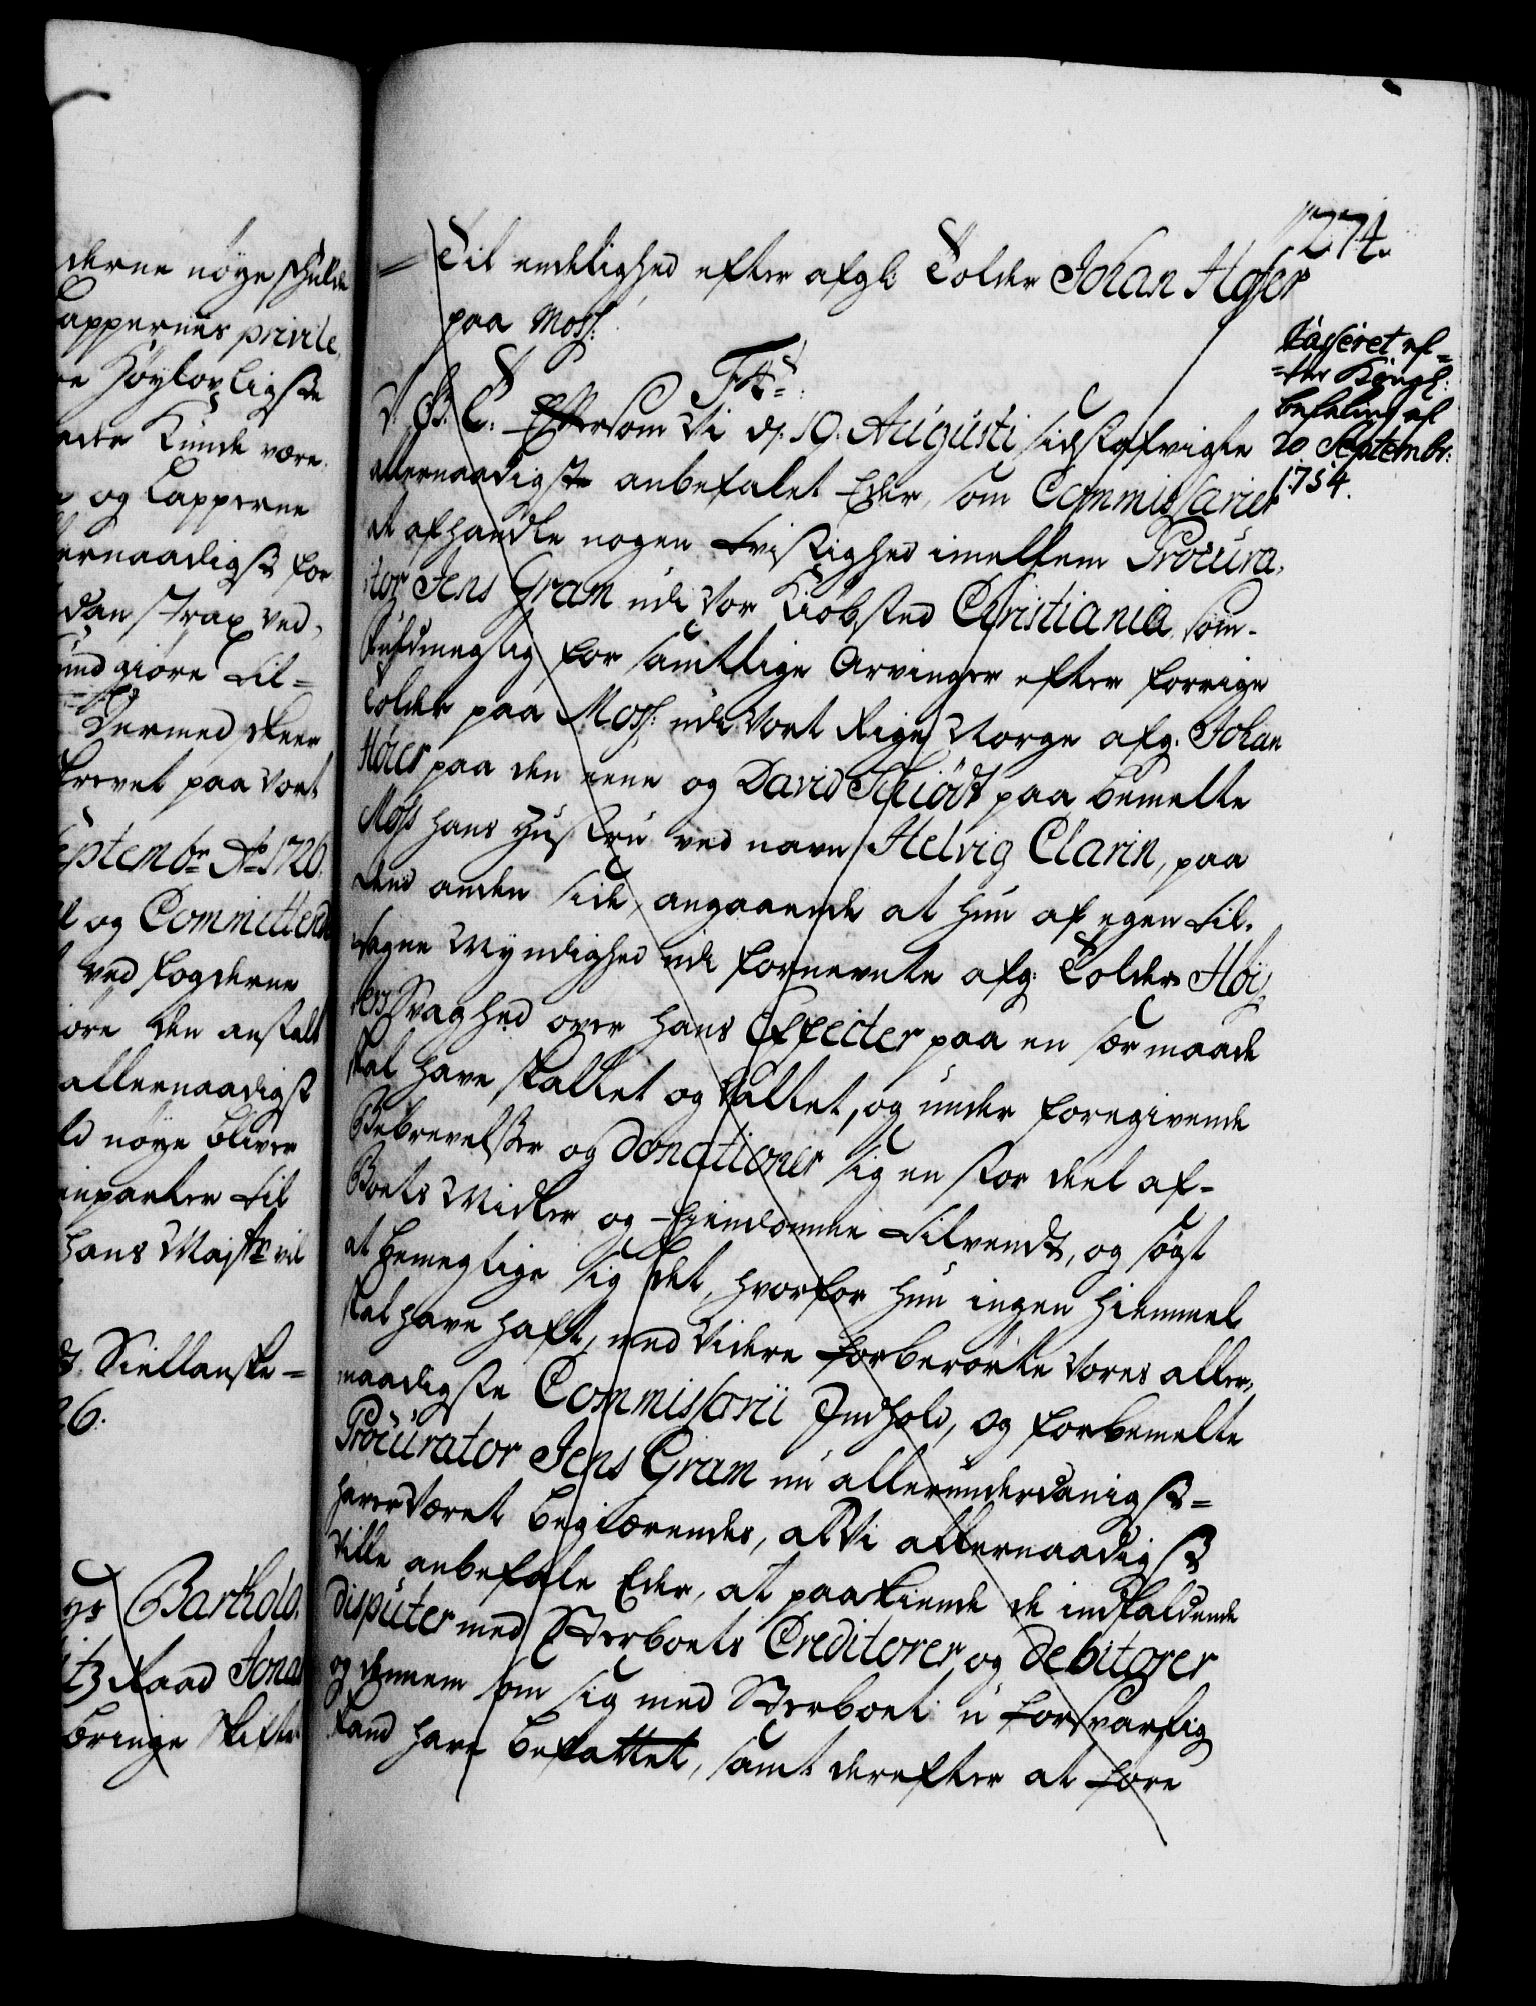 derne nøye skulde
appernes privile,
re høyloxligste
ede Kunde være
og Capperne
lernaadigst for
dan strax ved,
und giøre til=
Dermed skeer
Skrevet paa vort
Septembr Ao 1726.
og Committerede
ved fogderne
iøre den anstalt
allernaadigst
nøye bliver
inparter til
hans Majtt vil
Siellanske=
26.
Bartholo,
Raad Jonas
bringe skifter
274.
= Til endelighed efter afgl: Tolder Johan Høyer
paa Moss:
Casseret ef=
=ter Kongl:
befaling af
20 Septembr:
1754.
F4.
V. G. T. Eftersom Vi d. 19. Augusti sidstafvigte
allernaadigste anbefalet Eder, som Commissarier
at afhandle nogen tvistighed imellem Procura,
tor Jens Gram udi vor Kiøbsted Christiania, som-
fuldmegtig for samtlige Arvinger efter forrige
Tolder paa Moss: udi vort Rige Norge afg: Johan
Høier paa den eene og David Schiødt paa bemelte
Moss hans Hustru ved navn Helvig Clarin, paa
den anden side, angaaende at hun af egen til,
tagne Myndighed udi fornevnte afg: Tolder Høy,
ers Svaghed over hans Effecter paa en sær maade
skal have skaltet og valtet, og under foregivende
Bebrevelsser og Donationer sig en stor deel af-
Boets Midler og Eiendomme tilvendt, og søgt
at bemegtige sig det, hvorfor hun ingen hiemmel
skal have haft, med videre forberørte vores aller,
naadigste Commissorii Indhold, og forbemelte
Procurator Jens Gram nu allerunderdanigst=
haver været begiærendes, at Vi allernaadigst
ville anbefale Eder, at paakiende de indfaldende
disputer med Sterboets Creditorer og Debitorer
og dennem som sig med Sterboet u-forsvarlig
kand have befattet, samt derefter at føre